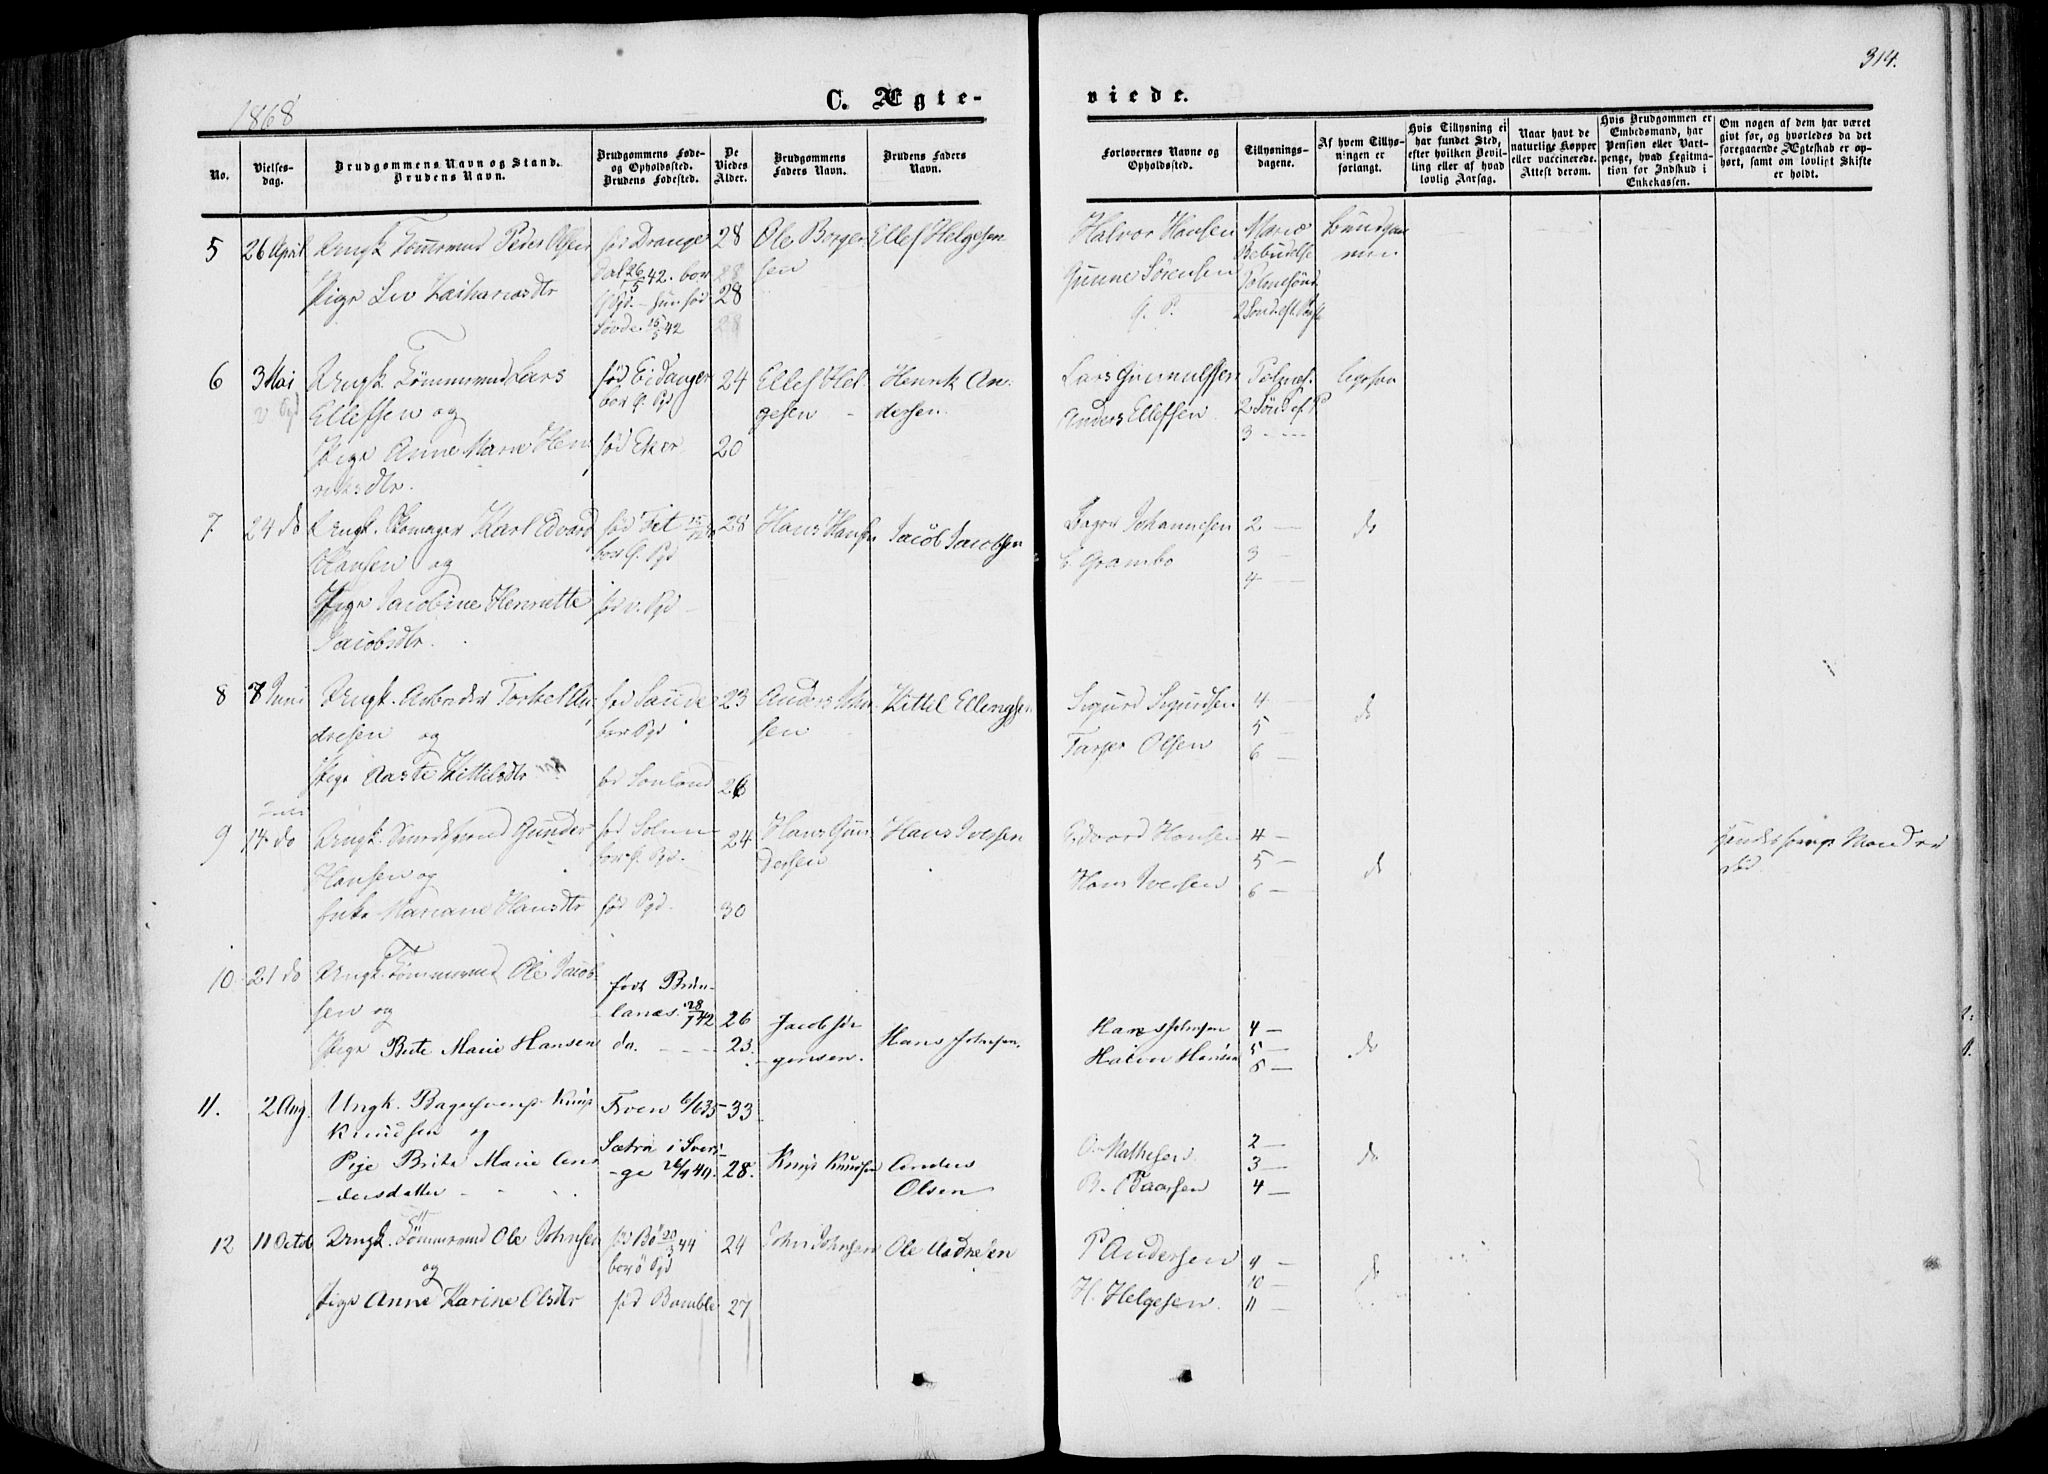 314.
1868
C. Ægte-
viede.
No.
Vielses-
dag.
Brudgommens Navn og Stand.
Brudens Navn.
Brudgommens Føde-
og Opholdssted.
Brudens Fødested.
De
Viedes
Alder.
Brudgommens
Faders Navn.
Brudens Faders
Navn.
Forlovernes Navne og
Opholdssted.
Tillysnings-
dagene.
Af hvem Tillys-
ningen er
forlangt.
Hvis Tillysning ei
har fundet Sted,
efter hvilken Bevil-
ling eller af hvad
lovlig Aarsag.
Naar havt de
naturlige Kopper
eller vaccinerede.
Attest derom.
Hvis Brudgommen er
Embedsmand, har
Pension eller Vart-
penge, hvad Legitima-
tion for Indskud i
Enkekassen.
Om nogen af dem har været
givt før, og hvorledes da det
foregaaende Ægteskab er op-
hørt, samt om lovligt Skifte
er holdt.
5 26 April Ungk Tømmermd Peder Olsen
Pige Liv Zachariasdtr
28 Ole Borger
sen
28
Ellef Helgesen
Halvor Hansen
Gunne Sörensen
Mariæ
Bebudelse
6 3 Mai Ungk Tömmermd Lars
Ellefsen og
Pige Anne Marie Hen
riksdtr.
fød Eidanger
bor G. Pgd
fød Eker
24
20
Ellef Hel
gesen
Henrik An
dersen
Anders Ellefsen
2 Sönd ef. P
3
7 24 do Ungk. Skomager Karl Edvard
Hansen og
Pige Jacobine Henriette
Jacobsdtr.
28 Hans Hansen Jacob Jacobsen
Johannesen
E. Grambo
2
3
4
do
8 7 Juni Ungk. Arbeider Torkel An
dresen og
Pige Aaste Kittilsdtr
fød Saude
bor Pgd
23
26
Anders
sen
Kittil Ellingsen
Sigurd Sigurdsen
Olsen
4
5
6
do
9 14 do Ungk. Gunder
Hansen og
Enke Mariane Hansdtr
fød Pgd.
24
30
Hans Gun
dersen
Hans Iversen
Edvard Hansen
Hans Iversen
4
5
6
do
Mand er
död
10 21 do Ungk. Tömmermd Ole Jacob
sen og
Pige Berte Marie Hansen
född Brun-
lanæs 28/1 42
do.
26
23.
Jacob Jör
gensen.
Hans Johnsen.
Hans Johnsen
Hansen
4
5
6
do
11. 2 Aug. Ungk. Bagersvend Knut
Knudsen og
Pige Brita Marie An
dersdatter
Tven 6/6 35
Sætra i Sveri
ge 26/9 40.
33
28.
Knut Knudsen
Anders
Olsen
O. Mathesen
B. Baarsen
2
3
4
do
12 11 Octob Ungk. Tömmermd Ole Johnsen
og
Pige Anne Karine Olsdtr
fød Bö 20/3 44
bor ö Pgd
fød Bamble
24
27
John Johnsen Ole Andresen
P Andersen
H. Helgesen.
9
10
11
do